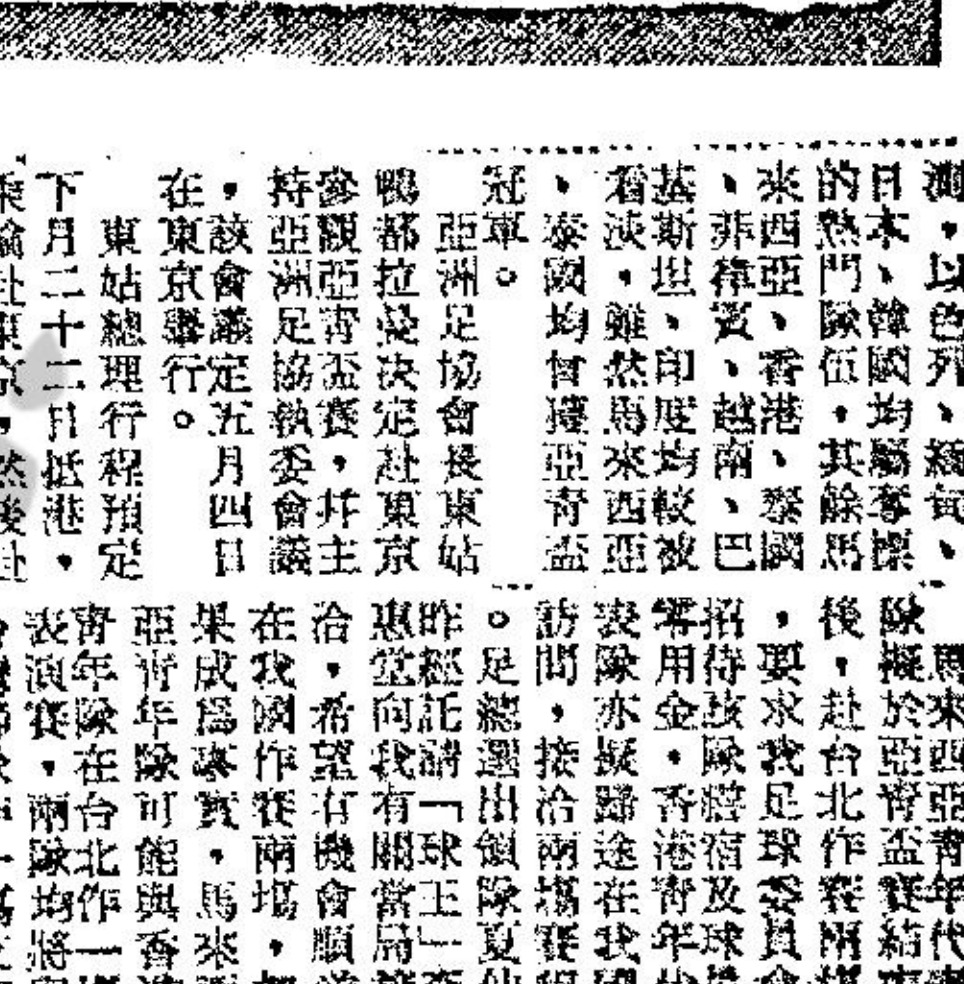 測，以色列、緬甸、
日本、韓國均屬奪標
的熱門隊伍，其餘馬
來西亞、香港、泰國
、菲律賓、越南、巴
基斯坦、印度均較被
看淡，雖然馬來西亞
、泰國均曾獲亞青盃
冠軍。
亞洲足協會長東姑
鴨都拉曼決定赴東京
參觀亞青盃賽，并主
持亞洲足協執委會議
，該會議定五月四日
在東京舉行。
東姑總理行程預定
下月二十二日抵港，
乘輪赴東京，然後赴
馬來西亞青年代
隊擬於亞青盃賽結
後，赴台北作賽兩
，要求我足球委員會
招待該隊膳宿及球
零用金，香港青年
表隊亦擬歸途在我
訪問，接洽兩場賽
。足總選出領隊夏
昨經託請「球王」
惠堂向我有關當局
洽，希望有機會順
在我國作賽兩場，
果成爲事實，馬來
亞青年隊可能與香
青年隊在台北作一
表演賽，兩隊均將